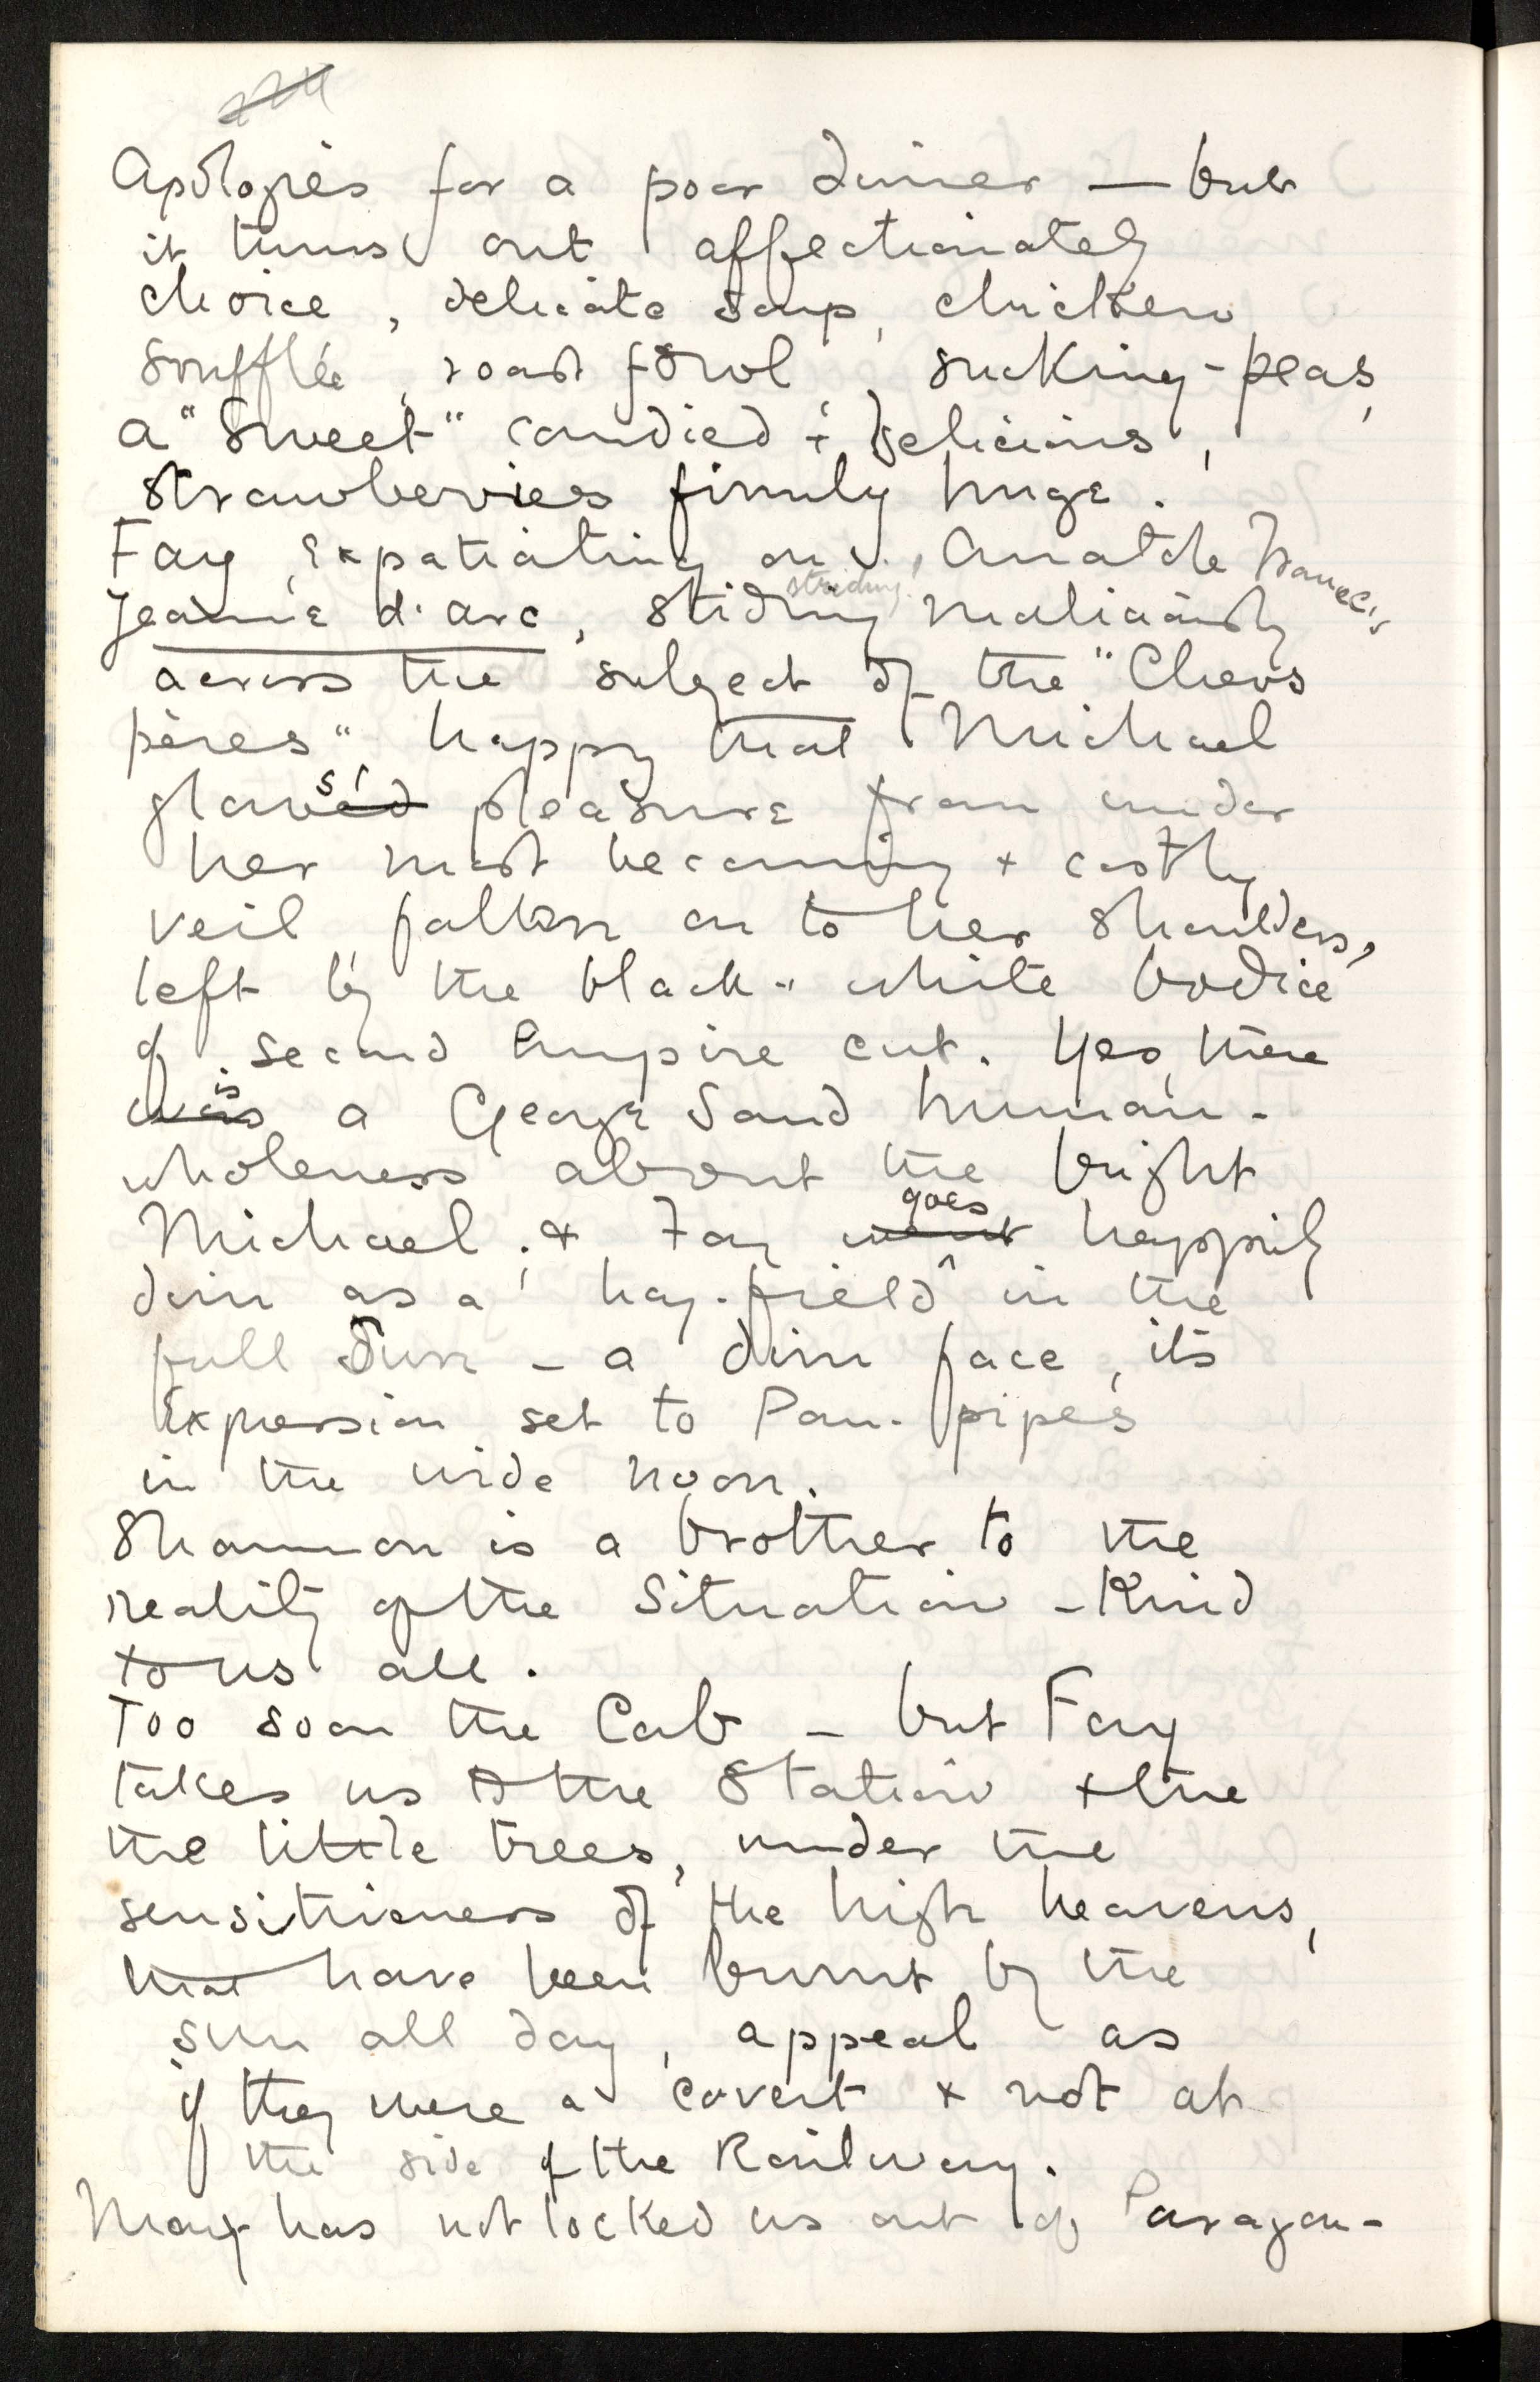 Apologies for a poor dinner — but
it turns out affectionately
choice, delicate soup, chicken
soufflé, roast fowl, sucking-peas,
a "Sweet" candied & delicious,
strawberries firmly huge.
Fay, expatiating on Anatole France's
striding
Jeanne d'Arc, striding maliciously
across the subject of the "Chers
pères" happy that Michael
s
glowed pleasure from under
her most becoming + costly
veil fallen on to her shoulders,
left by the black-white bodice
of Second Empire cut. Yes, there
is
was a George Sand human-
wholeness about the bright
goes
Michael; & Fay went happily
dim as a hay-field in the
full sun – a dim face, its
Expression set to Pan-pipes
in the wide noon.
Shannon is a brother to the
reality of the Situation – Kind
to us all.
Too soon the Cab – but Fay
takes us to the Station + the
the little trees, under the
sensitiveness of the high heavens,
that have been burnt by the
sun all day, appeal as
if they were a covert + not at
the side of the Railway.
Mary has not locked us out of Paragon-